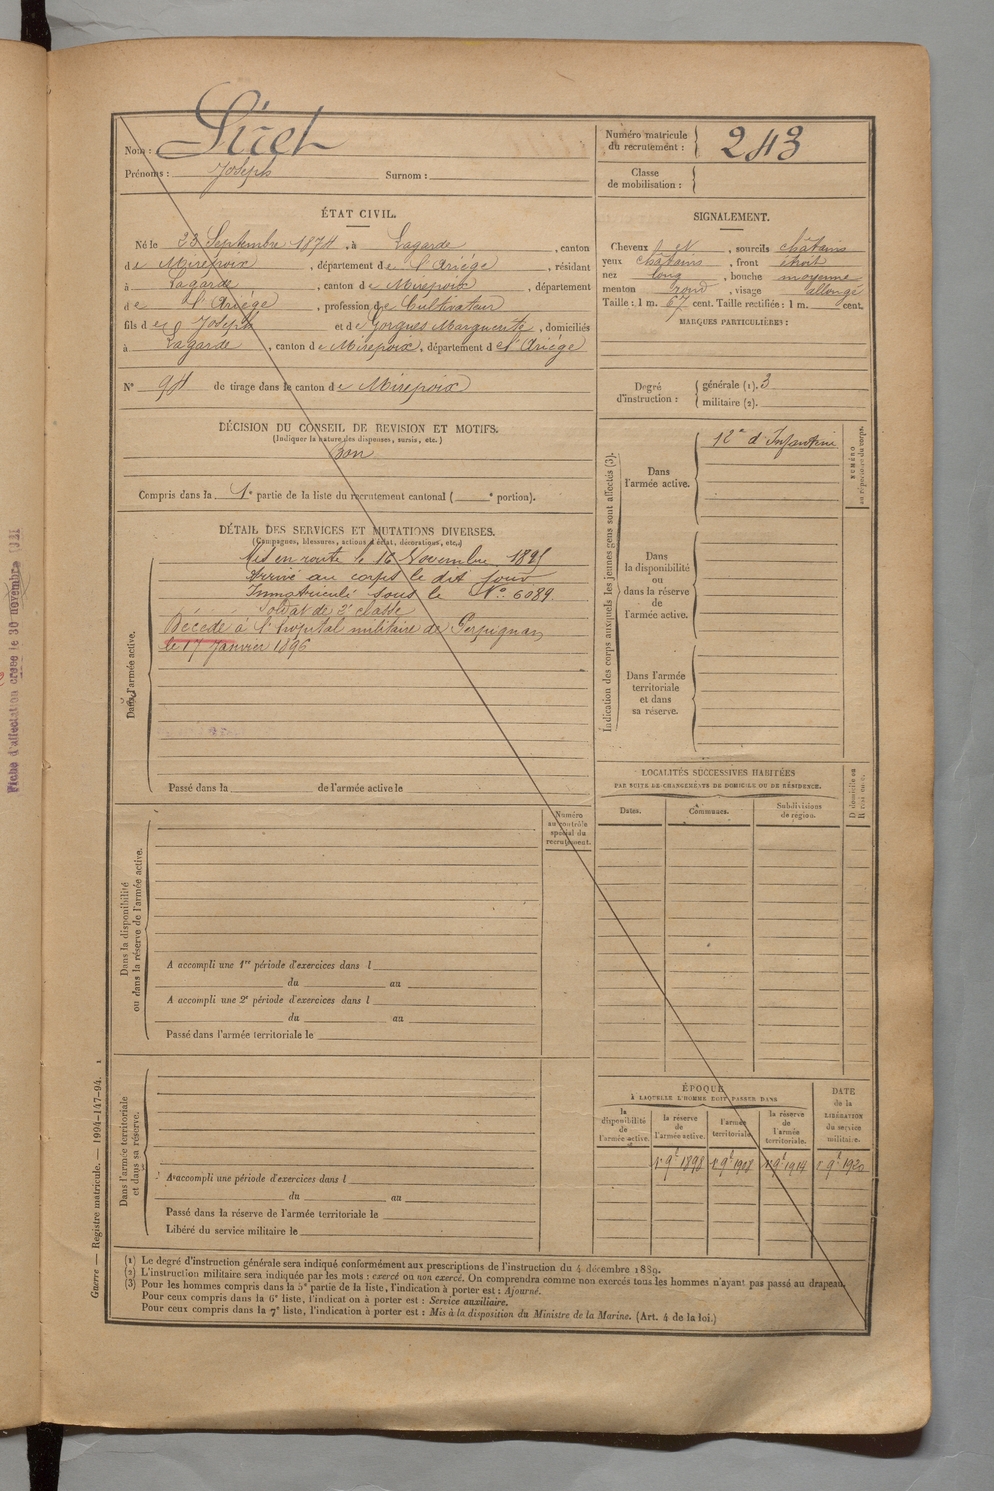 Nom :
Prénoms : Joseph Surnom :
Numéro matricule du recrutement : 243
Classe de mobilisation :
ÉTAT CIVIL.
Né le 23 Septembre 1874, à Lagarde, canton
de Mirepoix, département de l'Ariége, résidant
à Lagarde, canton de Mirepoix, département
de l'Ariége, profession de Cultivateur
fils de Joseph et de Gorgues Marguerite, domiciliés
à Lagarde, canton de Mirepoix, département de l'Ariége
N° 94 de tirage dans le canton de Mirepoix
DÉCISION DU CONSEIL DE REVISION ET MOTIFS.
(Indiquer la nature des dispenses, sursis, etc.)
Bon
Compris dans la 1e partie de la liste du recrutement cantonal ( e portion).
DÉTAIL DES SERVICES ET MUTATIONS DIVERSES.
(Campagnes, blessures, actions d'éclat, décorations, etc.)
Dans l'armée active.
Mis en route le 16 Novembre 1895
Arrivé au corps le dit jour
Immatriculé sous le N° 6089.
Soldat de 2e classe
Décédé à l'hopital militaire de Perpignan
le 17 Janvier 1896
Passé dans la de l'armée active le
Dans la disponibilité
ou dans la réserve de l'armée active.
Numéro
au contrôle
spécial du
recrutement.
A accompli une 1re période d'exercices dans l
du au
A accompli une 2e période d'exercices dans l
du au
Passé dans l'armée territoriale le
Dans l'armée territoriale
et dans sa réserve.
A accompli une période d'exercices dans l
du au
Passé dans la réserve de l'armée territoriale le
Libéré du service militaire le
SIGNALEMENT.
Cheveux , sourcils châtains
yeux châtains, front étroit
nez long, bouche moyenne
menton rond, visage allongé
Taille : 1 m. 67 cent. Taille rectifiée : 1 m. cent.
MARQUES PARTICULIÈRES :
Degré d'instruction :
générale (1). 3
militaire (2).
Indication des corps auxquels les jeunes gens sont affectés (3).
Dans
l'armée active.
12e d'Infanterie
NUMÉRO
au répertoire du corps.
Dans
la disponibilité
ou
dans la réserve
de
l'armée active.
Dans l'armée
territoriale
et dans
sa réserve.
LOCALITÉS SUCCESSIVES HABITÉES
PAR SUITE DE CHANGEMENTS DE DOMICILE OU DE RÉSIDENCE.
Dates.
Communes.
Subdivisions
de région.
ÉPOQUE
À LAQUELLE L'HOMME DOIT PASSER DANS
la
disponibilité
de
l'armée active.
la réserve
de
l'armée active.
l'armée
territoriale.
la réserve
de
l'armée
territoriale.
DATE
de la
LIBÉRATION
du service
militaire.
1er 9e 1898 1er 9e 1908 1er 9e 1914 1er 9e 1920
(1) Le degré d'instruction générale sera indiqué conformément aux prescriptions de l'instruction du 4 décembre 1889.
(2) L'instruction militaire sera indiquée par les mots : exercé ou non exercé. On comprendra comme non exercés tous les hommes n'ayant pas passé au drapeau.
(3) Pour les hommes compris dans la 5e partie de la liste, l'indication à porter est : Ajourné.
Pour ceux compris dans la 6e liste, l'indication à porter est : Service auxiliaire.
Pour ceux compris dans la 7e liste, l'indication à porter est : Mis à la disposition du Ministre de la Marine. (Art. 4 de la loi.)
Guerre — Registre matricule. — 1994-147-94.
Fiche d'affectation créée le 30 novembre